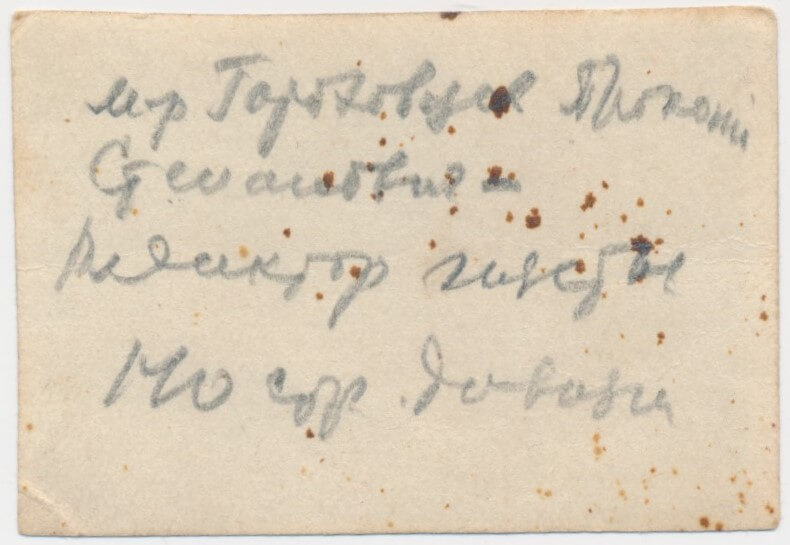 м-р Гороховцев Прокопий
Степанович –
Редактор газеты
140 стр. дивизи